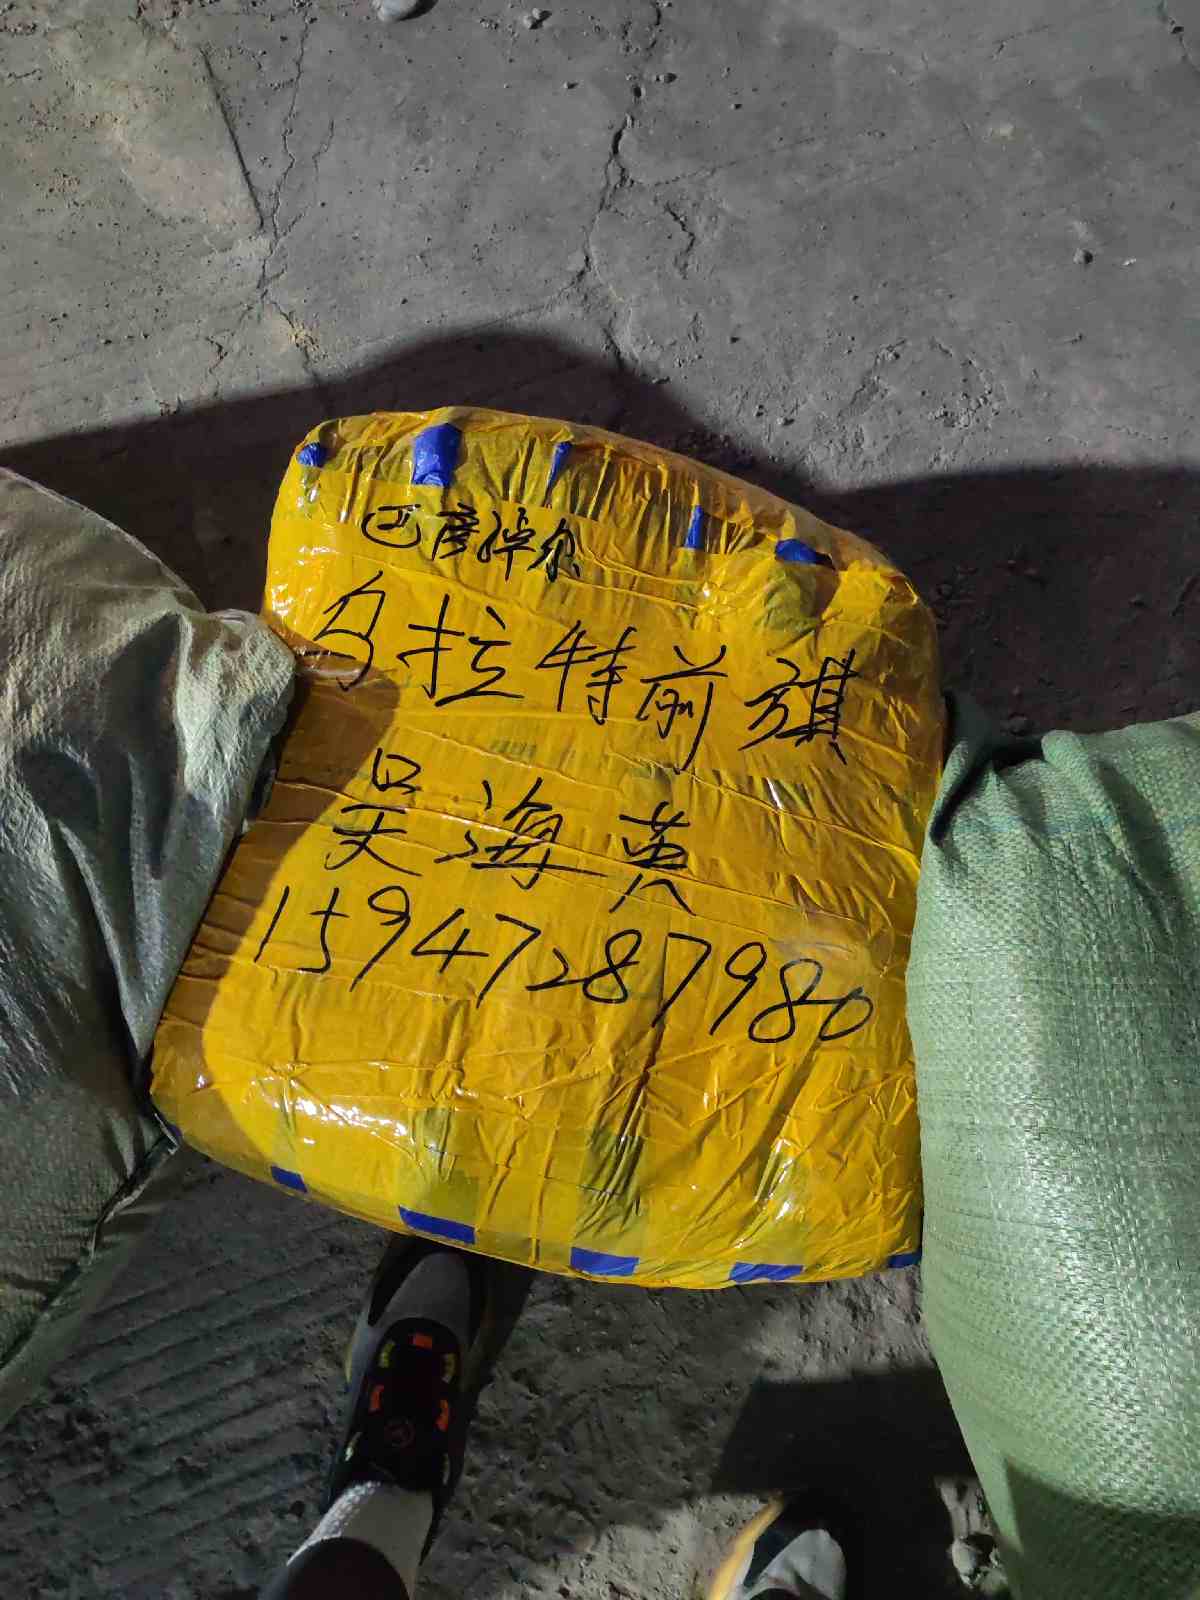 巴彦淖尔
乌拉特前旗
吴海英
15947287980